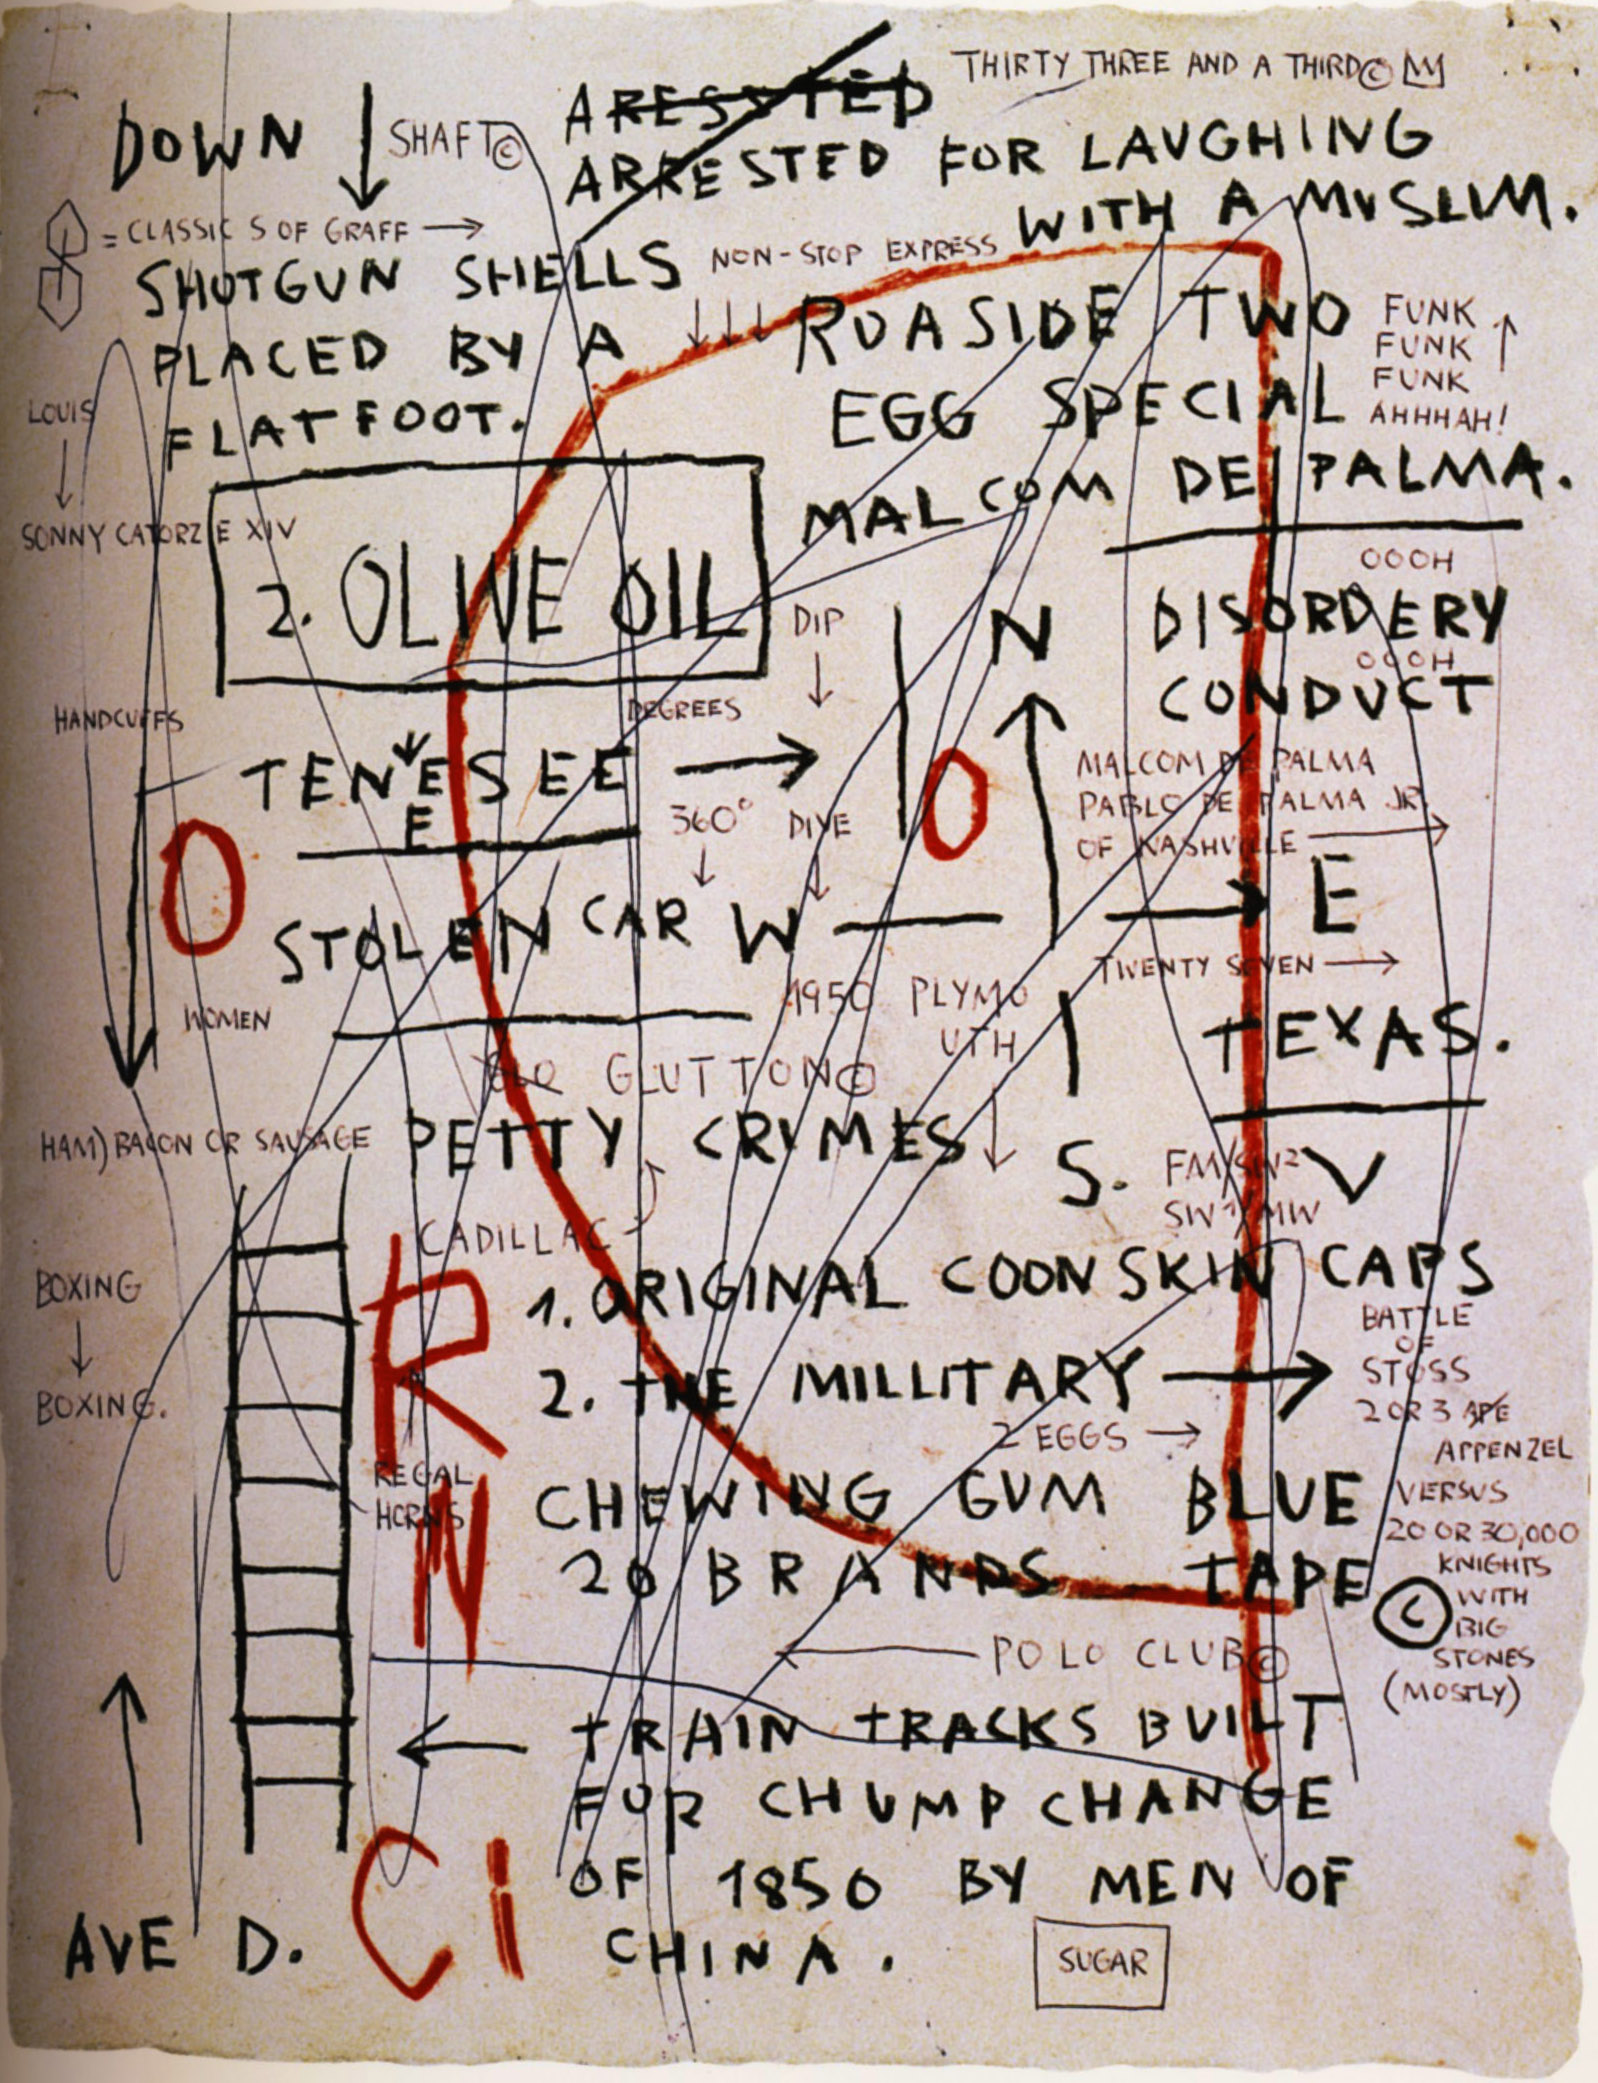 THIRTY THREE AND A THIRD ©
ARESSTED
DOWN ↓ SHAFT ©
ARRESTED FOR LAUGHING
WITH A MUSLIM.
= CLASSIC S OF GRAFF →
NON-STOP EXPRESS
SHOTGUN SHELLS
PLACED BY A
FLATFOOT.
ROASIDE TWO
EGG SPECIAL
MALCOM DE PALMA.
FUNK
FUNK
FUNK
AHHHAH!
LOUIS
SONNY CATORZE XIV
2. OLIVE OIL
DIP
OOOH
DISORDERY
OOOH
CONDUCT
N
HANDCUFFS
DEGREES
TENESEE →
E
360° DIVE
O
O
MALCOM DE PALMA
PABLO DE PALMA JR.
OF NASHVILLE →
STOLEN CAR W — → E
TWENTY SEVEN →
WOMEN
1950 PLYMO
UTH
TEXAS.
OLD GLUTTON ©
HAM) BACON OR SAUSAGE
PETTY CRIMES
S.
FM/SW²
SW¹/MW
V
CADILLAC
BOXING
↓
BOXING.
R
N
REGAL
HORNS
1. ORIGINAL COONSKIN CAPS
2. THE MILLITARY →
2 EGGS →
CHEWING GUM BLUE
20 BRANDS TAPE
BATTLE
OF
STOSS
2 OR 3 APE
APPENZEL
VERSUS
20 OR 30,000
KNIGHTS
WITH
BIG
STONES
(MOSTLY)
©
POLO CLUB ©
← TRAIN TRACKS BUILT
FOR CHUMP CHANGE
OF 1850 BY MEN OF
CHINA.
Ci
AVE D.
SUGAR